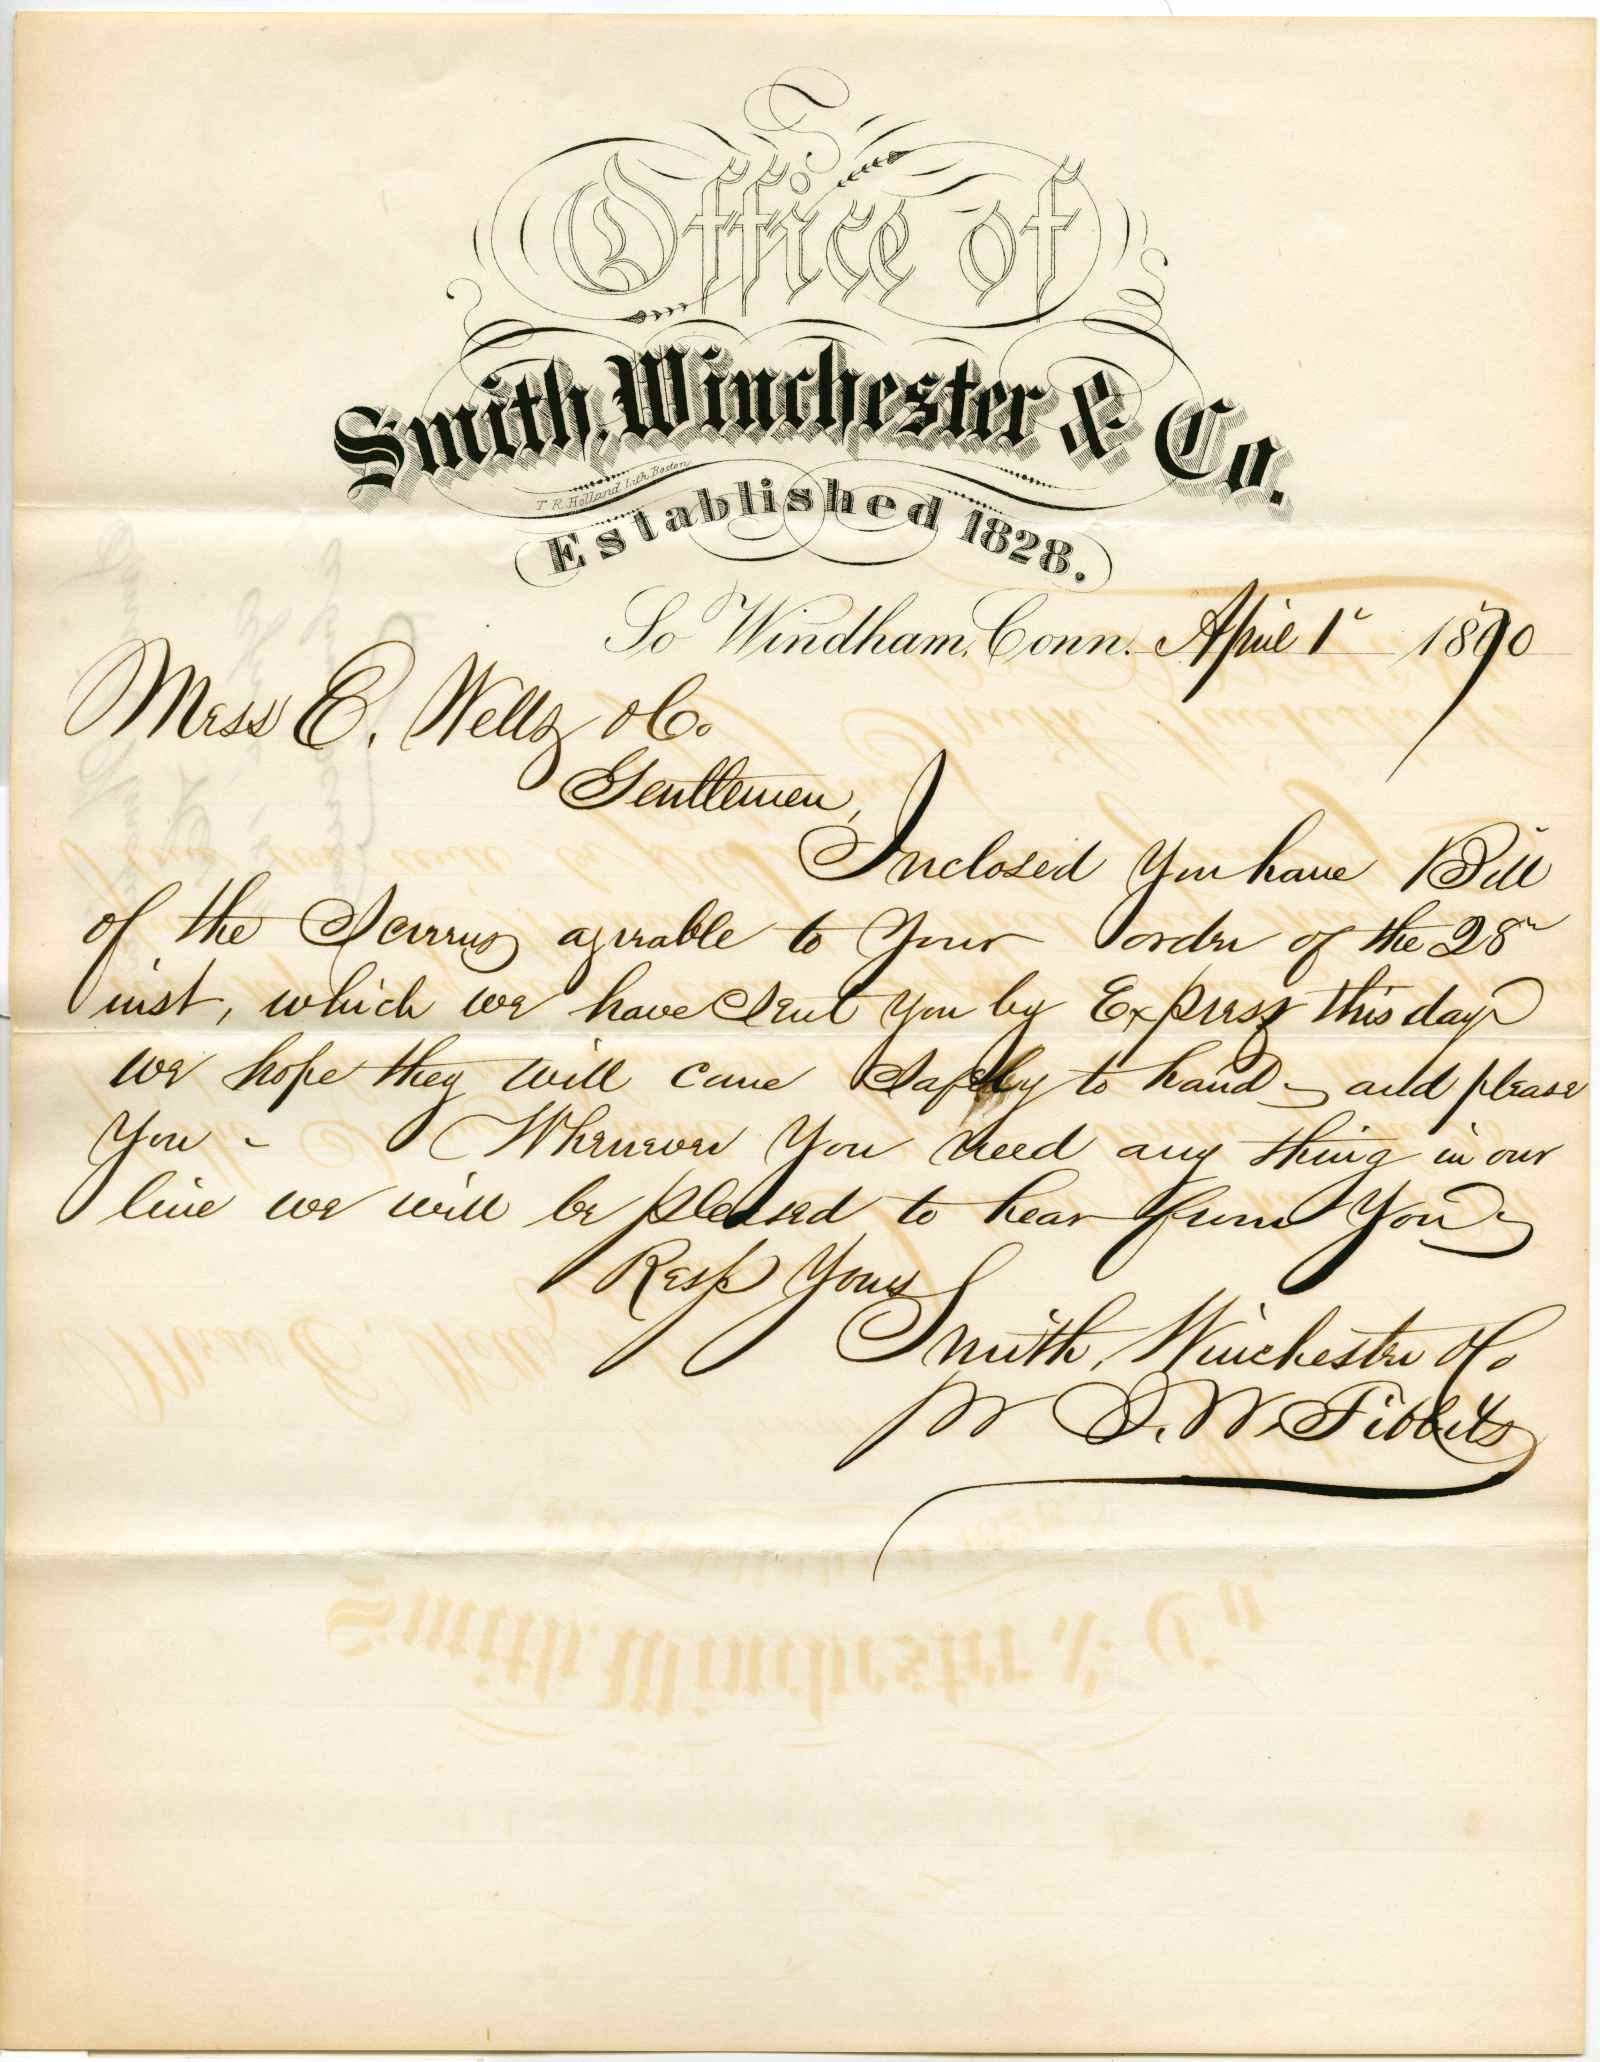 Office of
Smith, Winchester & Co.
T. R. Holland Lith. Boston
Established 1828.
So Windham, Conn. April 1st 1870
Mess E. Wells & Co.
Gentlemen,
Inclosed you have Bill
of the Screws agreable to your order of the 28th
inst, which we have sent you by Express this day
we hope they will come Safely to hand - and please
you - Whenever you need any thing in our
line we will be pleased to hear from you -
Resp Yours
Smith, Winchester & Co
S. W. Tibbits